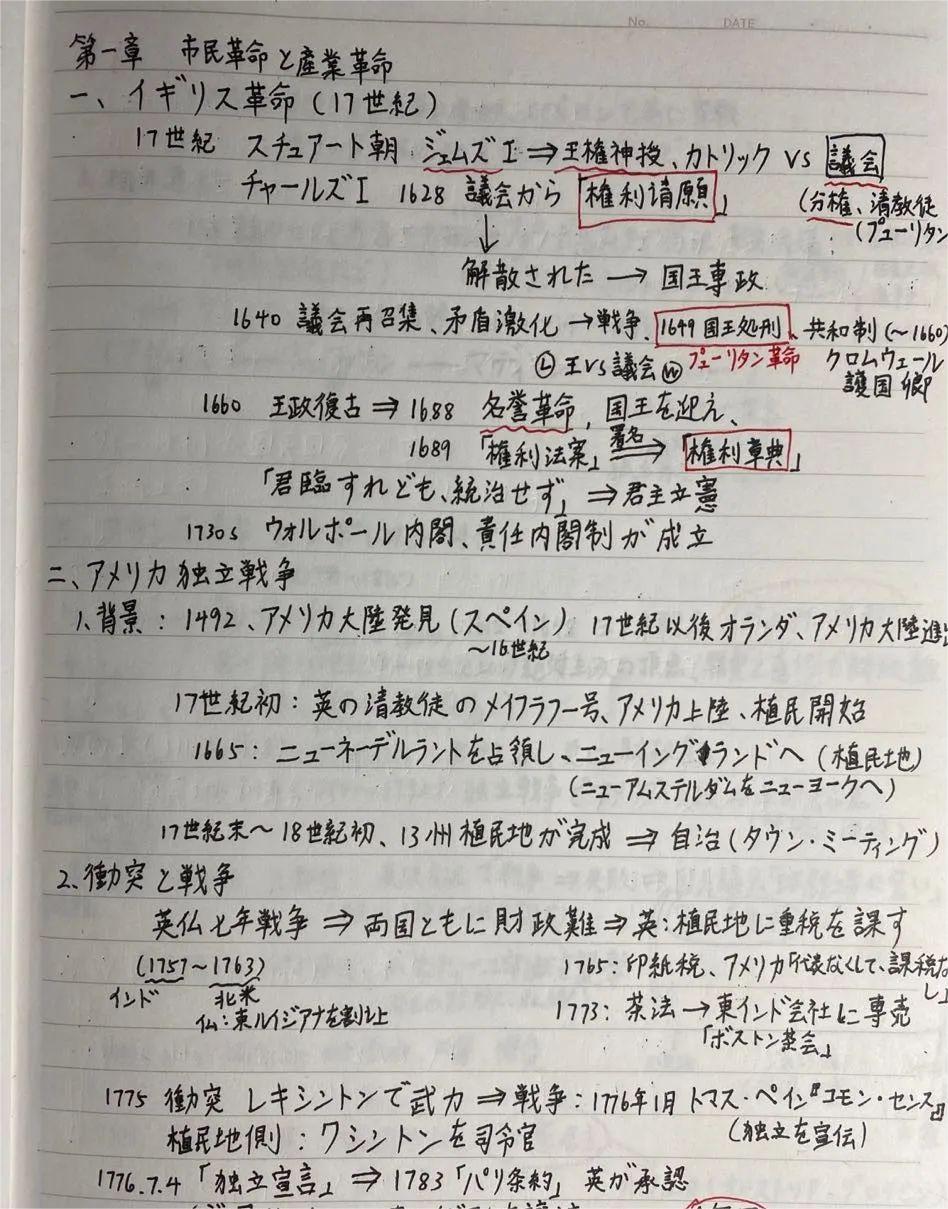 No.　DATE
第一章　市民革命と産業革命
一、イギリス革命(17世紀)
17世紀　スチュアート朝　ジェムズⅠ⇒王権神授、カトリック　VS　議会
チャールズⅠ　1628　議会から「権利請願」　(分権、清教徒
(ピューリタン
↓
解散された→国王専政
1640　議会再召集、矛盾激化→戦争、1649国王処刑、共和制(～1660)
Ⓛ王VS議会Ⓦ　ピューリタン革命　クロムウェール
護国卿
1660　王政復古⇒1688　名誉革命,国王を迎え、
1689　「権利法案」署名⇒「権利章典」
「君臨すれども、統治せず」⇒君主立憲
1730s　ウォルポール内閣、責任内閣制が成立
二、アメリカ独立戦争
1、背景：1492、アメリカ大陸発見(スペイン)　17世紀以後オランダ、アメリカ大陸進出
～16世紀
17世紀初：英の清教徒のメイフラフー号、アメリカ上陸、植民開始
1665：ニューネーデルラントを占領し、ニューイングランドへ(植民地)
(ニューアムステルダムをニューヨークへ)
17世紀末～18世紀初、13州植民地が完成⇒自治(タウン・ミーティング)
2、衝突と戦争
英仏七年戦争⇒両国ともに財政難⇒英：植民地に重税を課す
(1757～1763)　1765：印紙税、アメリカ「代表なくして、課税な
インド　北米　し」
仏：東ルイジアナを割譲　1773：茶法→東インド会社に専売
「ボストン茶会」
1775　衝突　レキシントンで武力⇒戦争：1776年1月　トマス・ペイン『コモン・センス』
植民地側：ワシントンを司令官　(独立を宣伝)
1776.7.4「独立宣言」⇒1783「パリ条約」英が承認